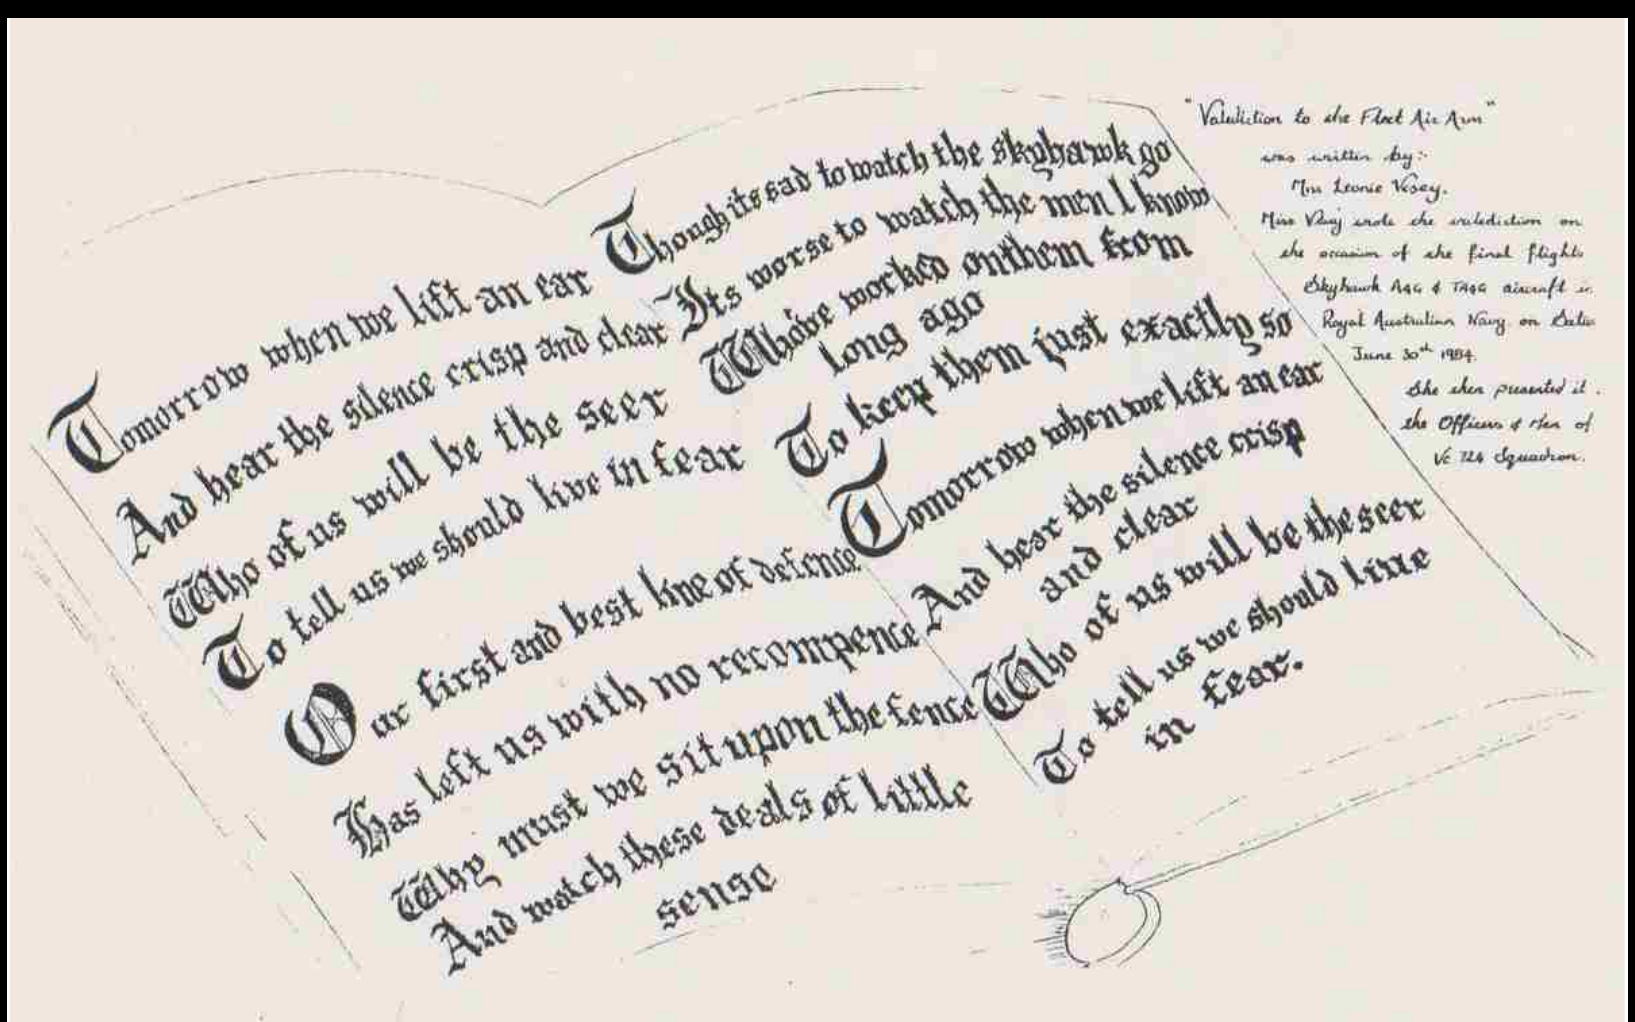 Tomorrow when we lift an ear
And hear the silence crisp and clear
Who of us will be the seer
To tell us we should live in fear
Our first and best line of defence
Has left us with no recompence
Why must we sit upon the fence
And watch these deals of little
sense
Though its sad to watch the skyhawk go
Its worse to watch the men I know
Who've worked on them from
long ago
To keep them just exactly so
Tomorrow when we lift an ear
And hear the silence crisp
and clear
Who of us will be the seer
To tell us we should live
in fear.
"Valediction to the Fleet Air Arm"
was written by:-
Leonie Vesey.
Miss Vesey wrote the valediction on
the occasion of the final flights
Skyhawk A4G & TA4G aircraft in
Royal Australian Navy on
June 30th 1984.
She then presented it
the Officers & Men of
VC 724 Squadron.